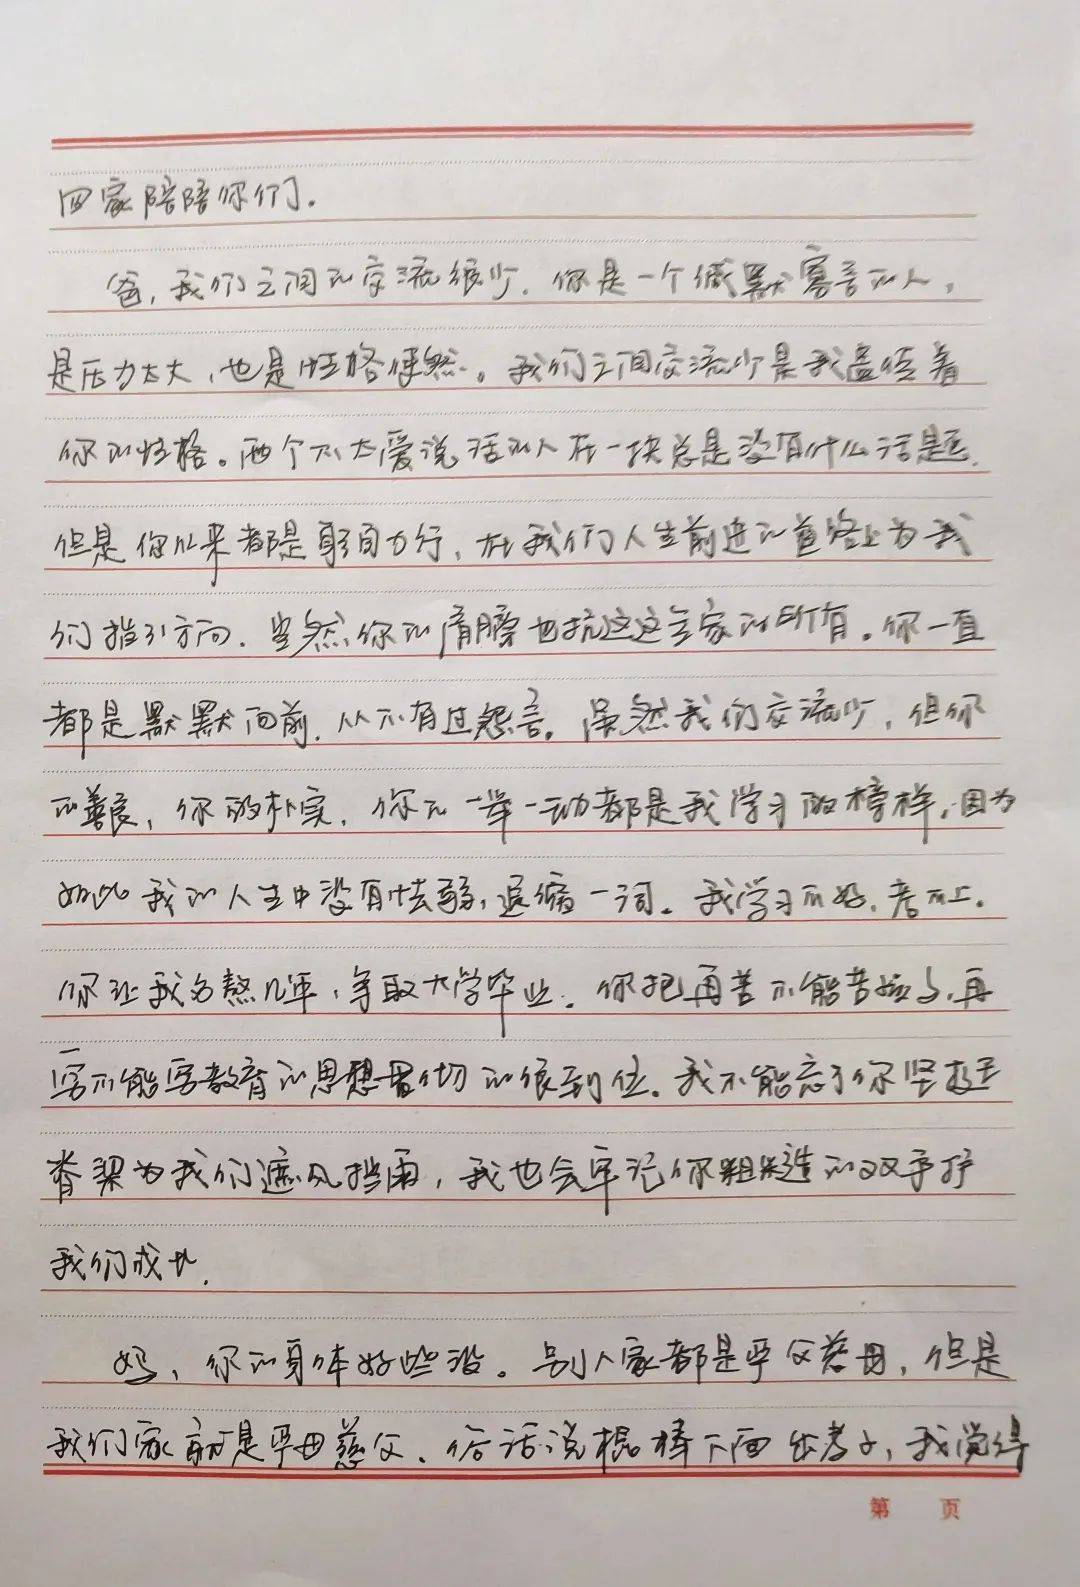 回家陪陪你们.
爸,我们之间的交流很少.你是一个缄默寡言的人,
是压力太大,也是性格使然。我们之间交流少是我遗传着
你的性格。两个不太爱说话的人在一块总是没有什么话题.
但是你从来都是身自力行,在我们人生前进的道路上为我
们指引方向.当然你的肩膀也抗这这个家的所有。你一直
都是默默向前.从不有过怨言。虽然我们交流少,但你
的善良,你的朴实.你的一举一动都是我学习的榜样,因为
如此我的人生中没有怯弱,退缩一词。我学习不好.考不上.
你让我多熬几年,争取大学毕业.你把再苦不能苦孩子,再
穷不能穷教育的思想贯彻的很到位.我不能忘了你坚挺
脊梁为我们遮风挡雨,我也会牢记你粗糙的双手护
我们成长.
妈,你的身体好些没。别人家都是严父慈母,但是
我们家就是严母慈父.俗话说棍棒下面出孝子,我觉得
第 页